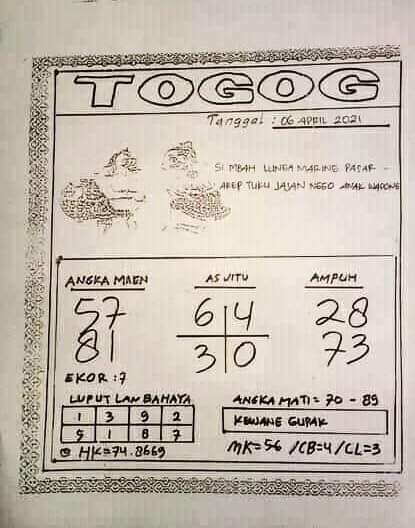 TOGOG
Tanggal : 06 APRIL 2021
SI MBAH LUNGA MARING PASAR -
AREP TUKU JAJAN NGGO ANAK WADONE
ANGKA MAEN
AS JITU
AMPUH
57
6 4
28
81
3 0
73
EKOR : 7
LUPUT LAN BAHAYA
ANGKA MATI = 70 - 89
1 3 9 2
KEWANE GUPAK
5 1 8 7
HK=74.8669
MK=56 /CB=4/CL=3